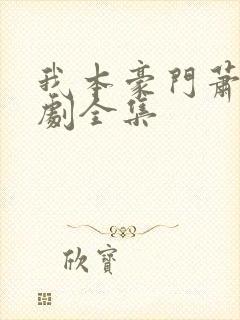 我本豪門蕭
劇全集
欣寶